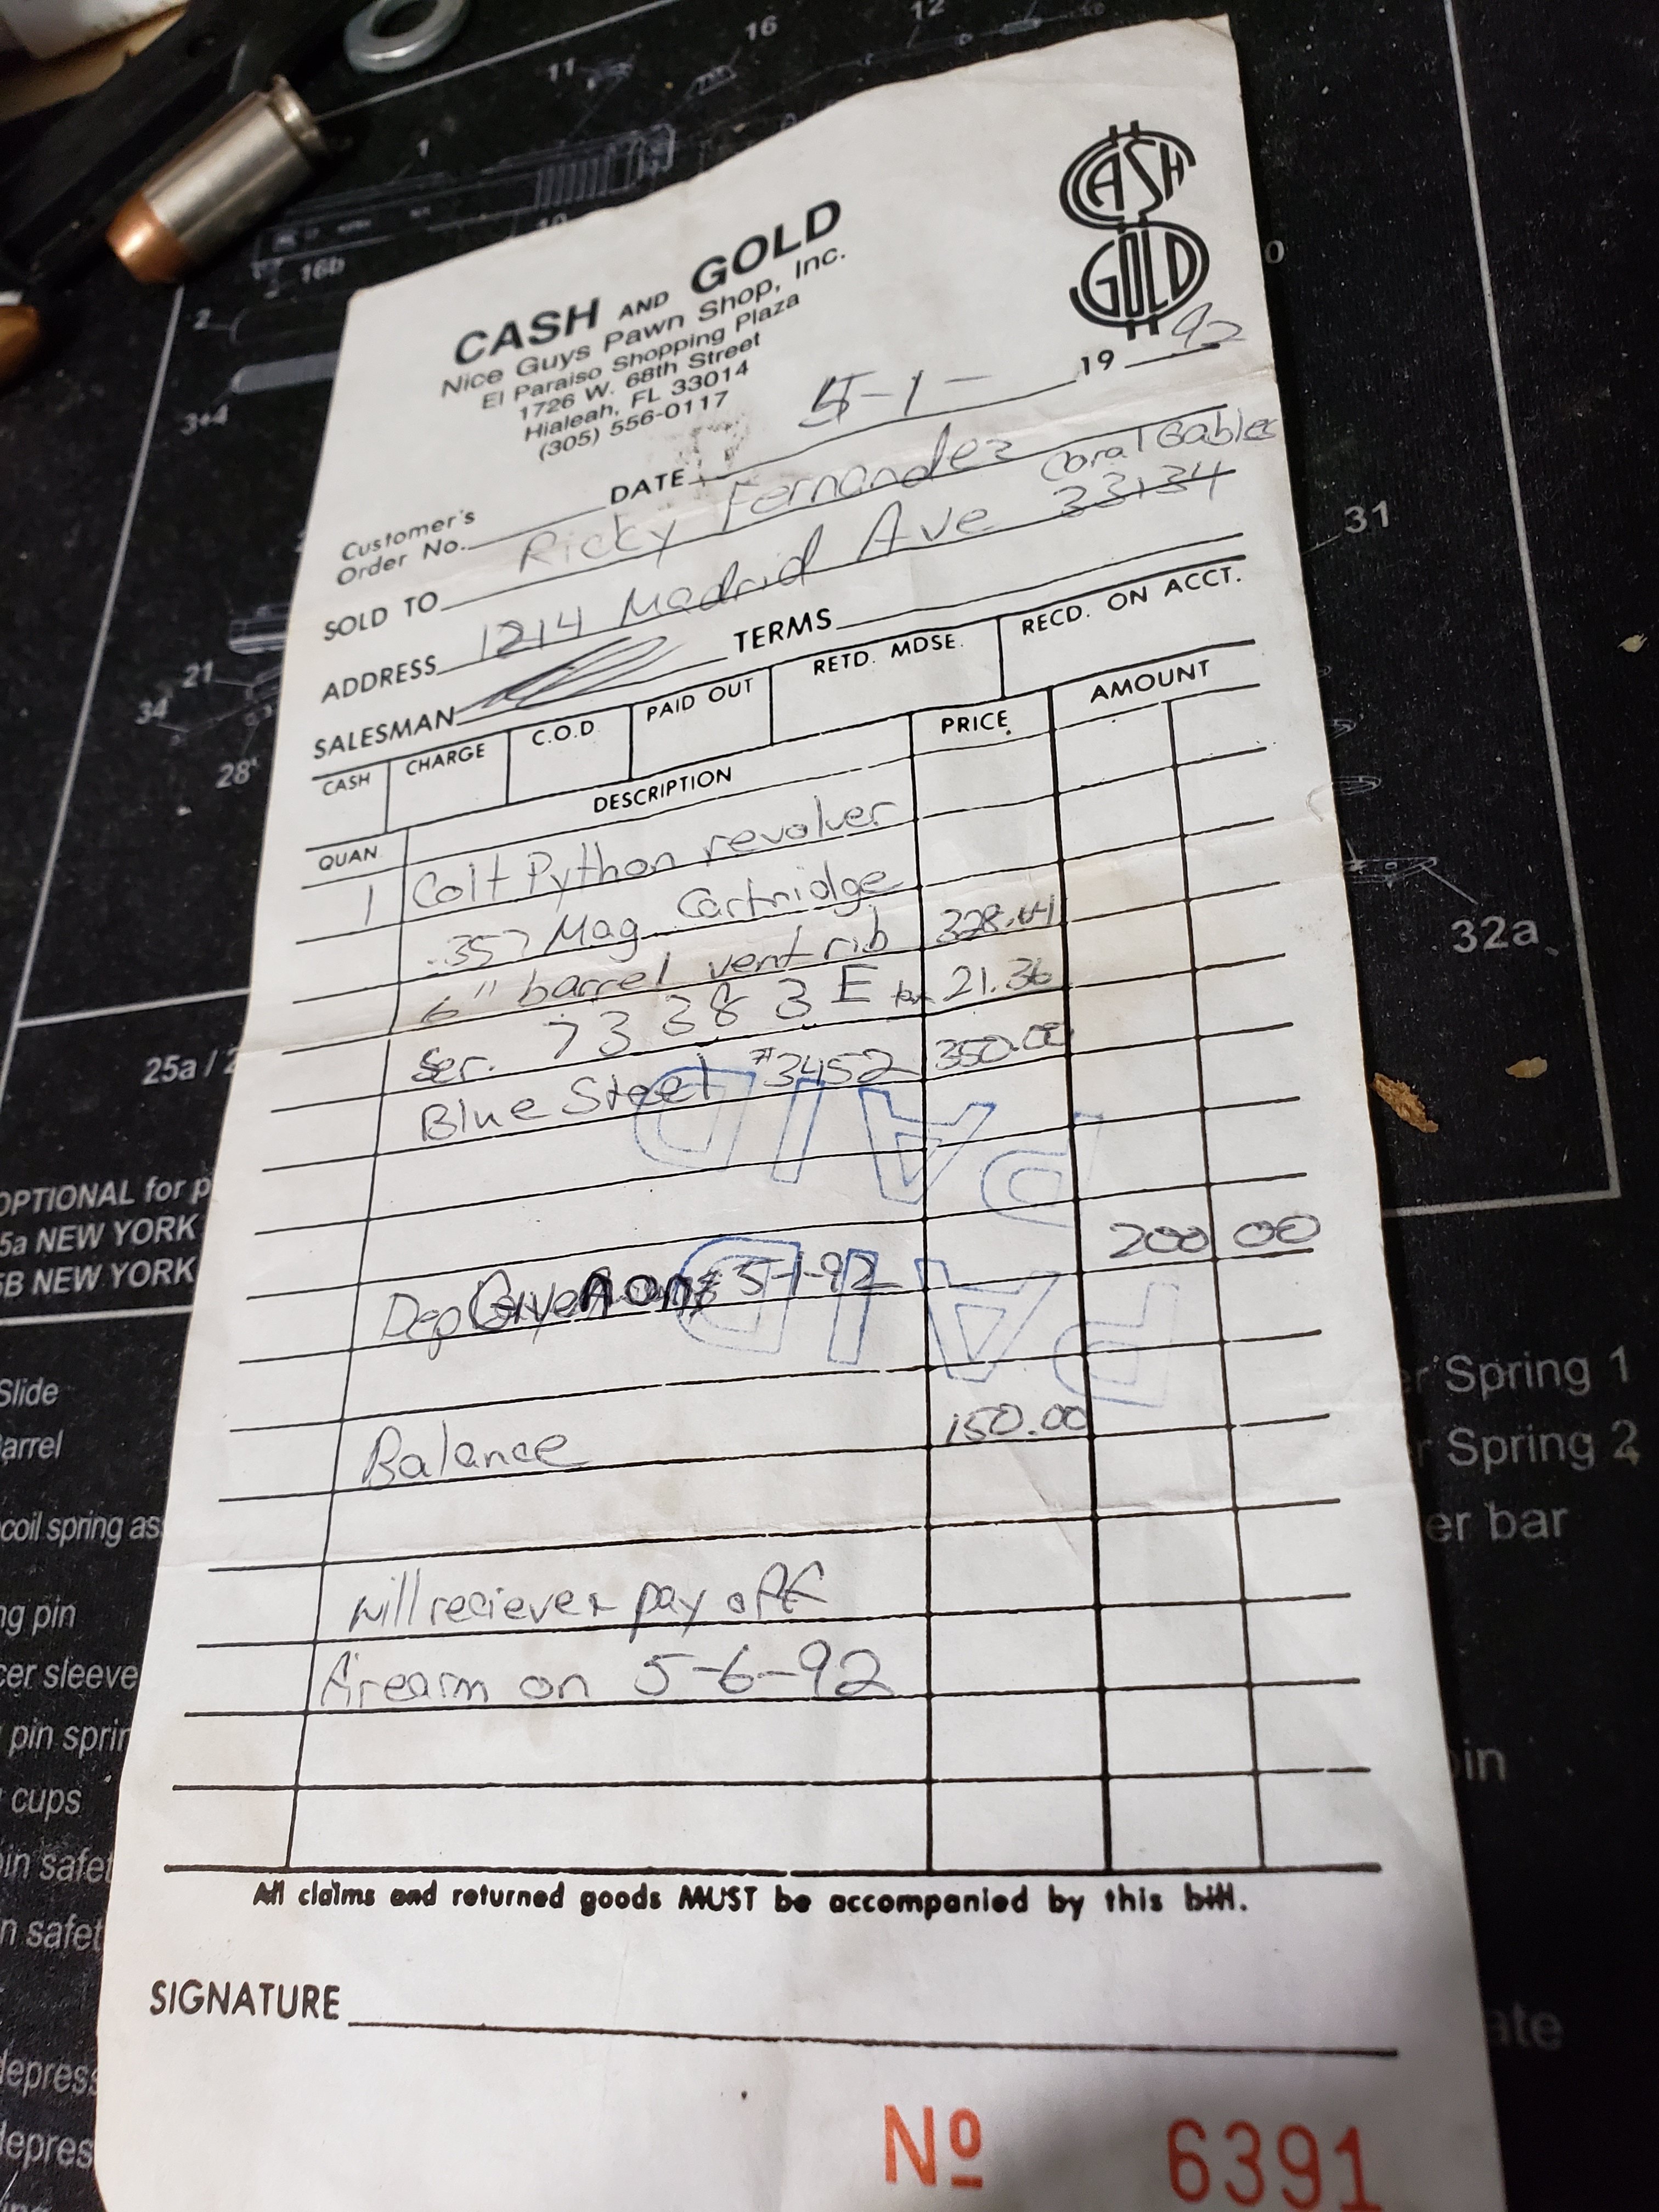 16
12
11
1
16b
10
2
3+4
CASH
GOLD
CASH AND GOLD
Nice Guys Pawn Shop, Inc.
El Paraiso Shopping Plaza
1726 W. 68th Street
Hialeah, FL 33014
(305) 556-0117
DATE 5-1- 19 92
Customer's
Order No.
SOLD TO Ricky Fernandez
Coral Gables
ADDRESS 1214 Madrid Ave 33134
SALESMAN TERMS
CASH CHARGE C.O.D PAID OUT RETD. MDSE. RECD. ON ACCT.
QUAN. DESCRIPTION PRICE AMOUNT
1 Colt Python revolver
.357 Mag Cartridge
6" barrel vent rib 328.64
Ser. 73383E tax 21.36
Blue Steel #3452 350.00
PAID
Dep Given on 5-1-92 200 00
PAID
Balance 150.00
will reciever pay off
firearm on 5-6-92
All claims and returned goods MUST be accompanied by this bill.
SIGNATURE
No 6391
31
32a
21
34
28
25a / 2
OPTIONAL for p
5a NEW YORK
5B NEW YORK
Slide
arrel
coil spring as
ng pin
cer sleeve
pin sprin
cups
in safet
n safet
depress
depres
r Spring 1
r Spring 2
er bar
in
ate